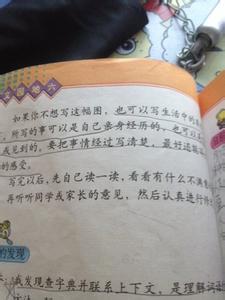 园地六
如果你不想写这幅图，也可以写生活中的
，所写的事可以是自己亲身经历的，也可以
或见到的。要把事情经过写清楚，最好还能
的感受。
写完以后，先自己读一读，看看有什么不满
再听听同学或家长的意见，然后认真进行
的发现
我发现查字典并联系上下文，是理解词